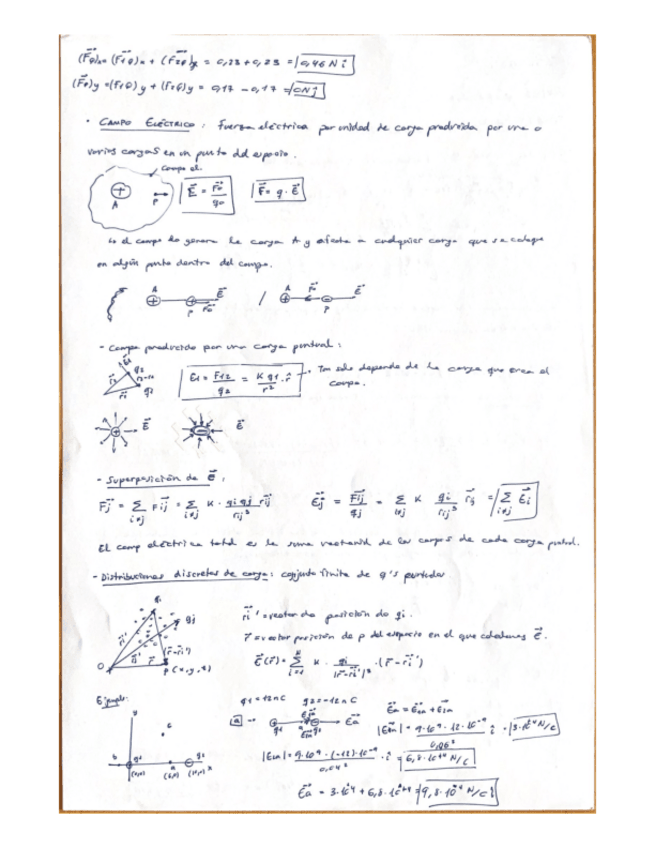 (F⃗Q)x = (F⃗1Q)x + (F⃗2Q)x = 0,23 + 0,23 = 0,46 N î
(F⃗Q)y = (F1Q)y + (F2Q)y = 0,17 - 0,17 = 0N ĵ
· CAMPO ELÉCTRICO: Fuerza eléctrica por unidad de carga producida por una o
varias cargas en un punto del espacio.
Campo el.
A P E⃗ = F⃗0/q0 F⃗ = q · E⃗
↳ el campo lo genera la carga A y afecta a cualquier carga que se coloque
en algún punto dentro del campo.
A P F⃗0 E⃗ / A F⃗0 P E⃗
- Campo producido por una carga puntual:
E1 = F12/q2 = K q1/r² · r̂ → Tan solo depende de la carga que crea el
campo.
E⃗ E⃗
- Superposición de E⃗:
F⃗j = Σ i≠j F⃗ij = Σ i≠j K · qi qj/rij³ r⃗ij E⃗j = F⃗ij/qj = Σ i≠j K qi/rij³ r⃗ij = Σ i≠j E⃗i
El camp eléctrico total es la suma vectorial de los campos de cada carga puntual.
- Distribuciones discretas de carga: conjunto finito de q's puntuales.
qi
qj
r⃗i' = vector de posición de qi.
r⃗ = vector posición de p del espacio en el que calculamos E⃗.
O r⃗ (r⃗-r⃗i') P(x,y,z)
E⃗(r⃗) = Σ i=1 K · qi/|r⃗-r⃗i'|³ · (r⃗-r⃗i')
Ejemplo:
q1 = 12nC q2 = -12nC
a → q1 a q2 E⃗a
E⃗a = E⃗1a + E⃗2a
|E⃗1a| = 9·10⁹ · 12·10⁻⁹/0,06² î = 3·10⁴ N/C
y c b q1 a q2 x
|E2a| = 9·10⁹ · (-12)·10⁻⁹/0,04² · î = 6,8·10⁺⁴ N/C
E⃗a = 3·10⁴ + 6,8·10⁺⁴ = 9,8·10⁴ N/C î